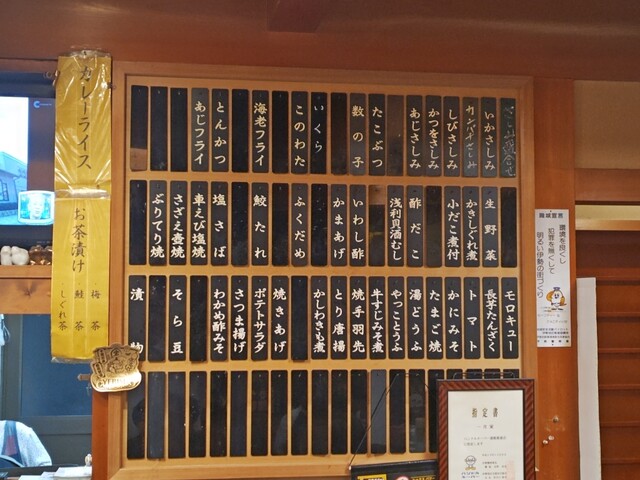 さしみ盛合せ
いかさしみ
カンパチさしみ
しびさしみ
かつをさしみ
あじさしみ
たこぶつ
数の子
いくら
このわた
海老フライ
とんかつ
あじフライ
生野菜
かきしぐれ煮
小だこ煮付
酢だこ
浅利貝酒むし
いわし酢
かまあげ
ふくだめ
鮫たれ
塩さば
車えび塩焼
さざえ壺焼
ぶりてり焼
モロキュー
長芋たんざく
トマト
かにみそ
たまご焼
湯どうふ
やっことうふ
牛すじみそ煮
焼手羽先
とり唐揚
かしわきも煮
焼きあげ
ポテトサラダ
さつま揚げ
わかめ酢みそ
そら豆
漬物
カレーライス
お茶漬け
梅茶
鮭茶
しぐれ茶
環境を良くし
犯罪を無くして
明るい伊勢の街づくり
指定書